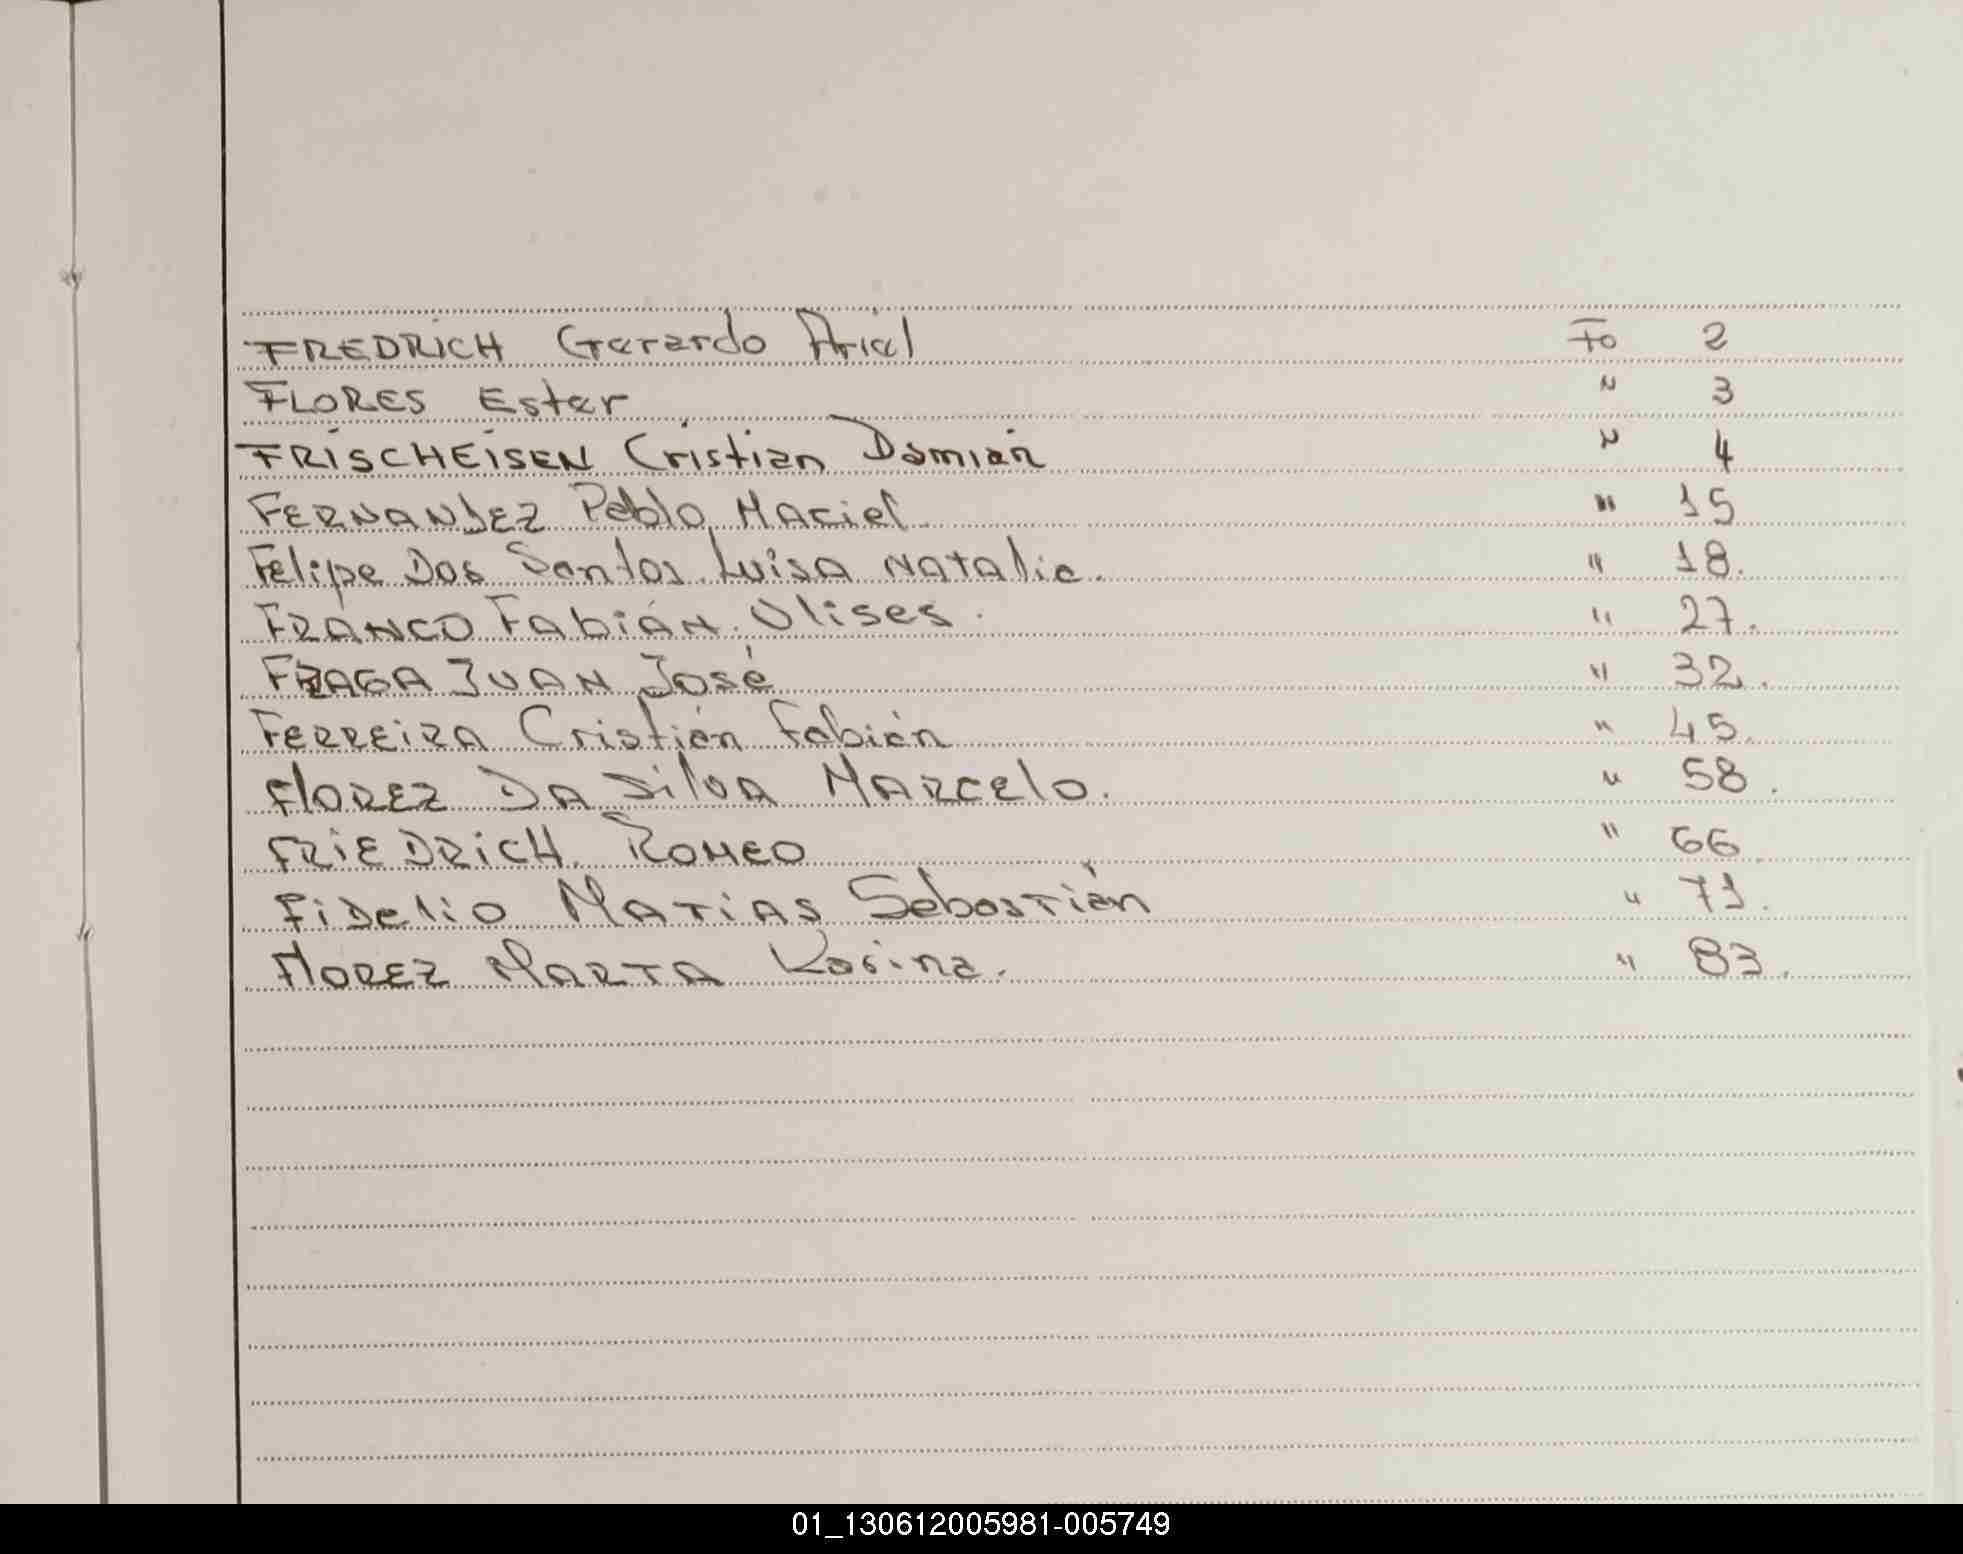 FREDRICH Gerardo Ariel Fo 2
FLORES Ester " 3
FRISCHEISEN Cristian Damian " 4
FERNANDEZ Pablo Maciel " 15
Felipe Dos Santos Luisa NATAlia. " 18.
FRANCO FAbiÁN Ulises. " 27.
FRAGA JUAN José " 32.
FERREiRA Cristián Fabián " 45.
FlOREZ DA SilVA MARcelo. " 58.
FRiEDRicH ROMEO " 66.
FiDelio MATiAS SebasTián " 71.
FlOREZ MARTA Rosina. " 83.
01_130612005981-005749